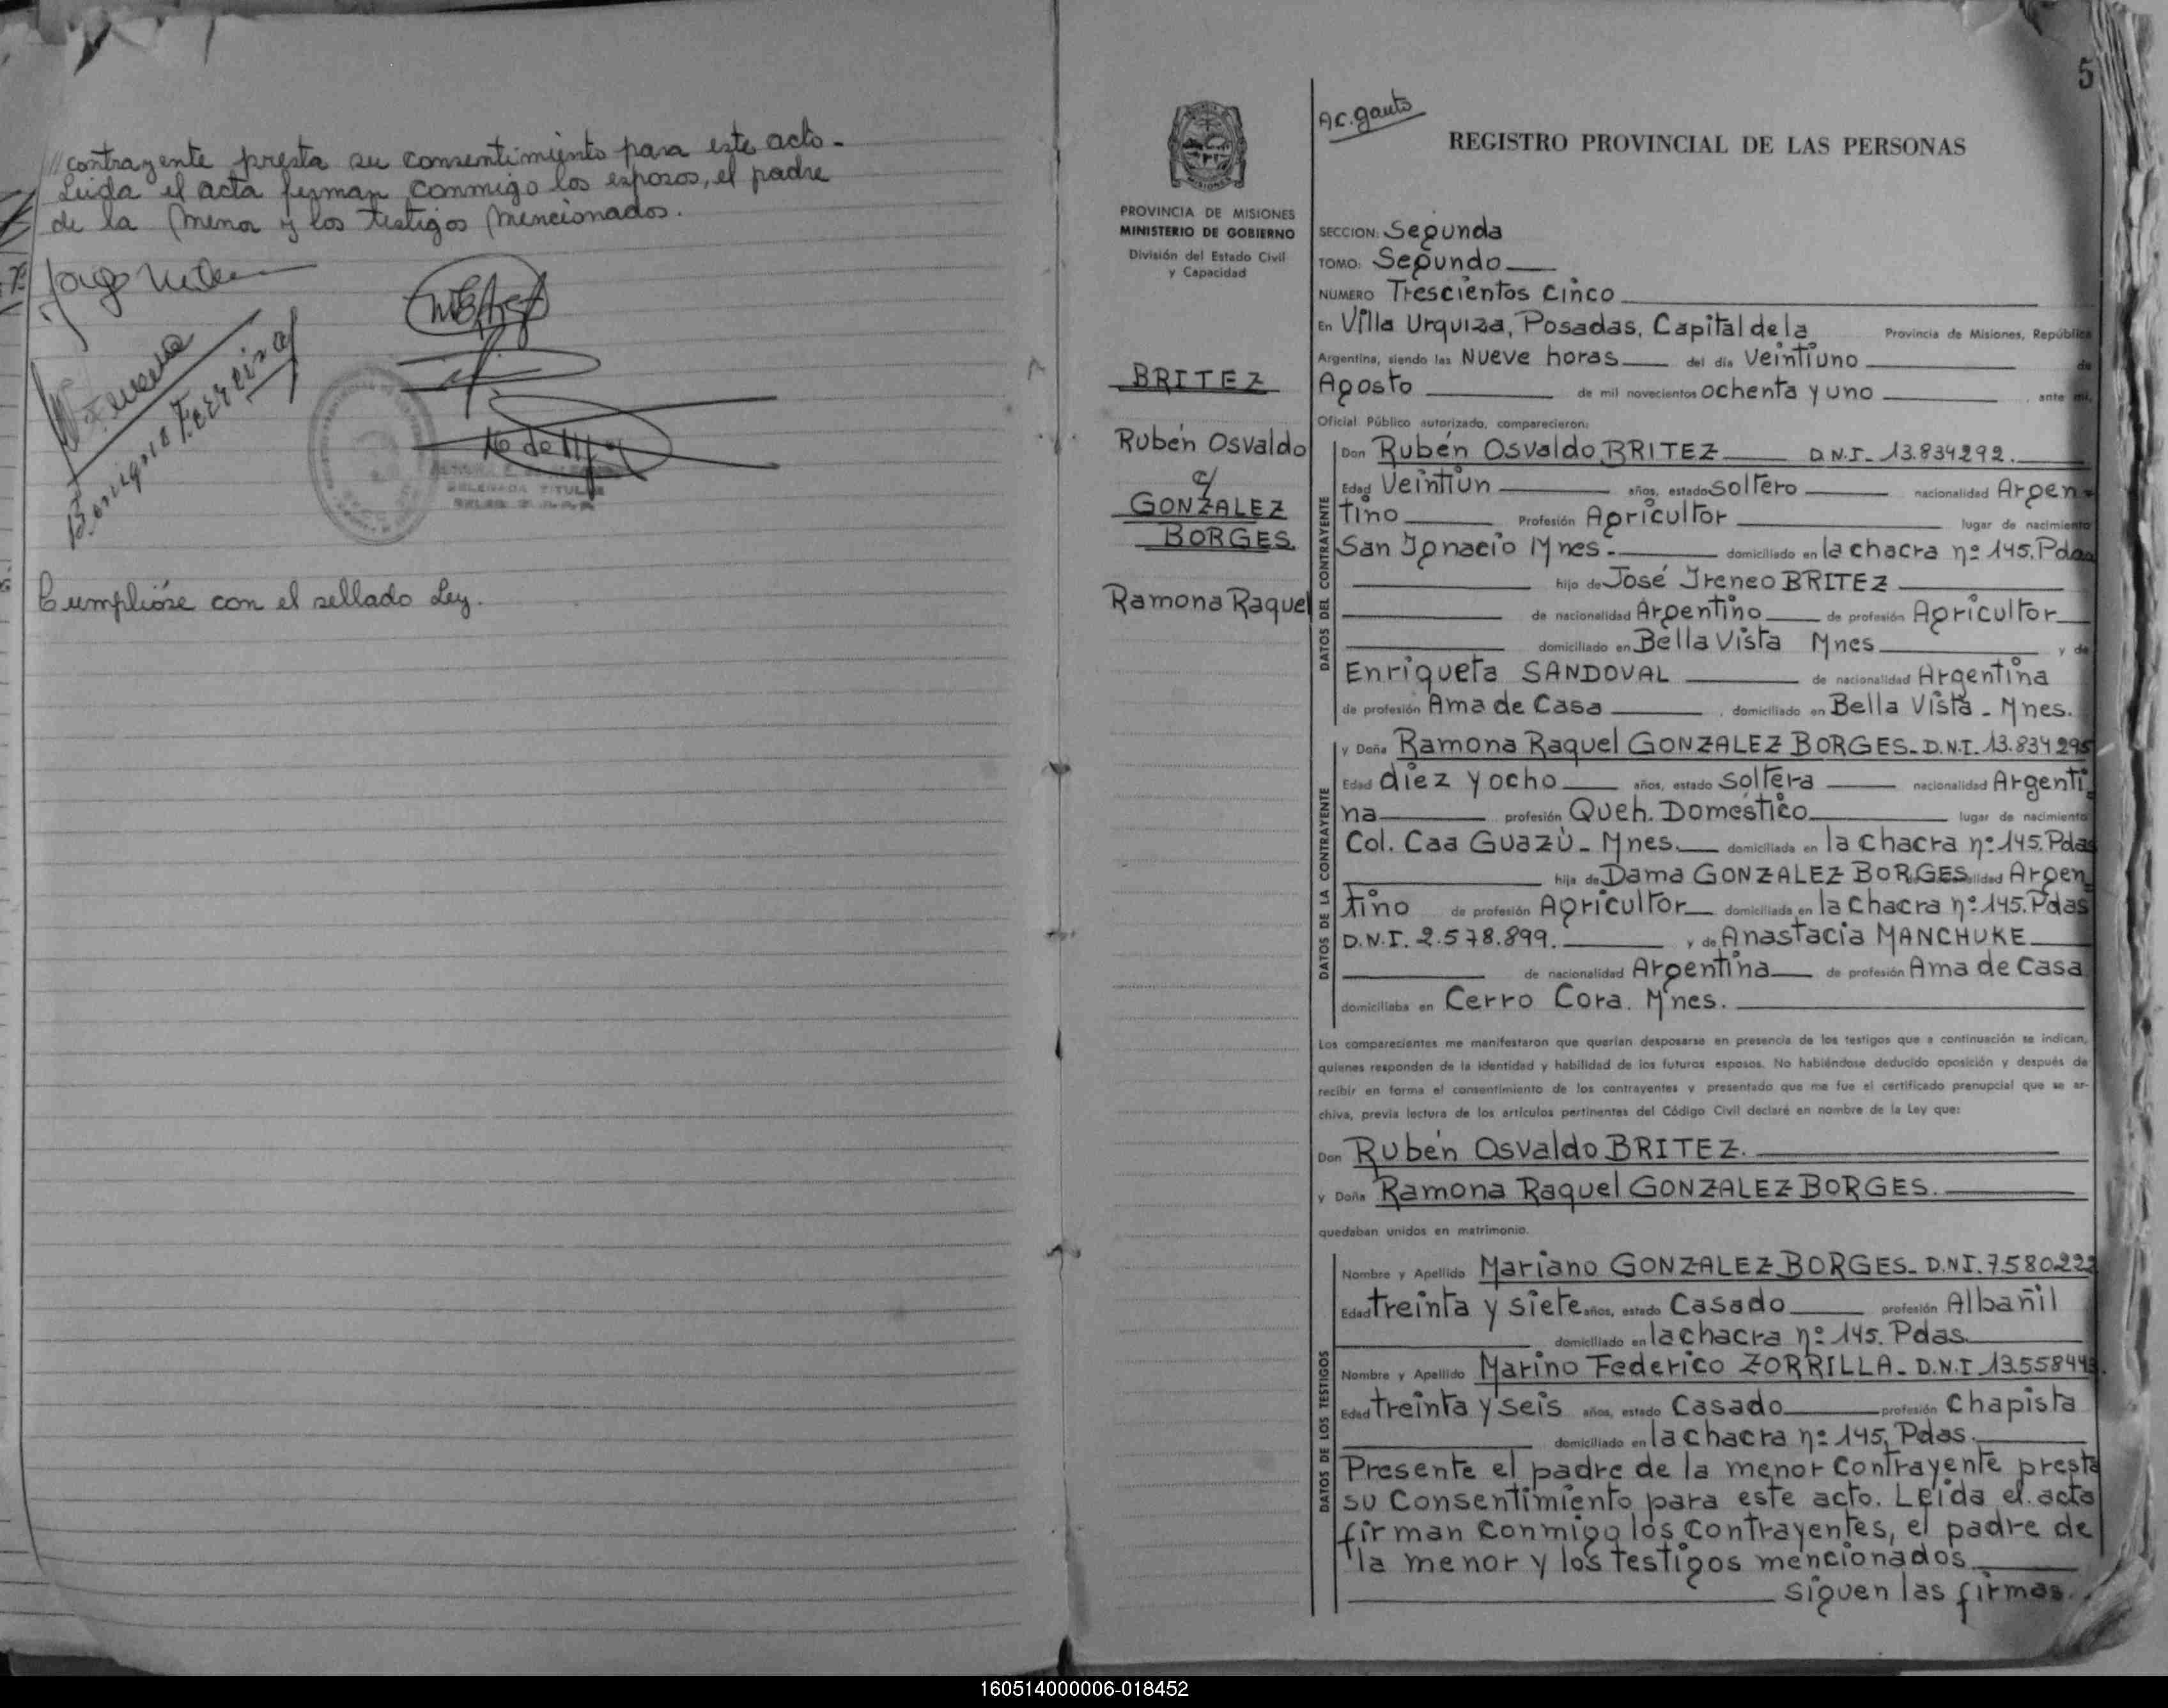 // contrayente presta su consentimiento para este acto.-
Leida el acta firman conmigo los esposos, el padre
de la menor y los testigos mencionados.
Ferreira
Cumplióse con el sellado Ley.
5
Ac. Gauto
REGISTRO PROVINCIAL DE LAS PERSONAS
MISIONES
PROVINCIA DE MISIONES
MINISTERIO DE GOBIERNO
División del Estado Civil
y Capacidad
BRITEZ
Rubén Osvaldo
c/
GONZALEZ
BORGES
Ramona Raquel
SECCION: Segunda
TOMO: Segundo
NUMERO Trescientos cinco
En Villa Urquiza, Posadas, Capital de la Provincia de Misiones, República
Argentina, siendo las Nueve horas del día Veintiuno de
Agosto de mil novecientos ochenta y uno, ante mí,
Oficial Público autorizado, comparecieron:
DATOS DEL CONTRAYENTE
Don Rubén Osvaldo BRITEZ D.N.I. 13.834292.
Edad Veintiún años, estado Soltero nacionalidad Argen-
tino Profesión Agricultor lugar de nacimiento
San Ignacio Mnes.- domiciliado en la chacra nº 145. Pdas
hijo de José Ireneo BRITEZ
de nacionalidad Argentino de profesión Agricultor
domiciliado en Bella Vista Mnes y de
Enriqueta SANDOVAL de nacionalidad Argentina
de profesión Ama de Casa, domiciliado en Bella Vista - Mnes.
DATOS DE LA CONTRAYENTE
y Doña Ramona Raquel GONZALEZ BORGES- D.N.I. 13.834295
Edad diez y ocho años, estado Soltera nacionalidad Argenti
na profesión Queh. Doméstico lugar de nacimiento
Col. Caa Guazú - Mnes. domiciliada en la chacra nº 145. Pdas
hija de Dama GONZALEZ BORGES nacionalidad Argen
tino de profesión Agricultor domiciliada en la chacra nº 145. Pdas
D.N.I. 2.578.899. y de Anastacia MANCHUKE
de nacionalidad Argentina de profesión Ama de Casa
domiciliaba en Cerro Cora. Mnes.
Los comparecientes me manifestaron que querían desposarse en presencia de los testigos que a continuación se indican,
quienes responden de la identidad y habilidad de los futuros esposos. No habiéndose deducido oposición y después de
recibir en forma el consentimiento de los contrayentes y presentado que me fue el certificado prenupcial que se ar-
chiva, previa lectura de los artículos pertinentes del Código Civil declaré en nombre de la Ley que:
Don Rubén Osvaldo BRITEZ.
y Doña Ramona Raquel GONZALEZ BORGES.
quedaban unidos en matrimonio.
DATOS DE LOS TESTIGOS
Nombre y Apellido Mariano GONZALEZ BORGES- D.N.I. 7.580222
Edad treinta y siete años, estado Casado profesión Albañil
domiciliado en la chacra nº 145. Pdas.
Nombre y Apellido Marino Federico ZORRILLA- D.N.I 13.558443.
Edad treinta y seis años, estado Casado profesión Chapista
domiciliado en la chacra nº 145, Pdas.
Presente el padre de la menor contrayente presta
su consentimiento para este acto. Leida el acta
firman conmigo los contrayentes, el padre de
la menor y los testigos mencionados
siguen las firmas.
160514000006-018452